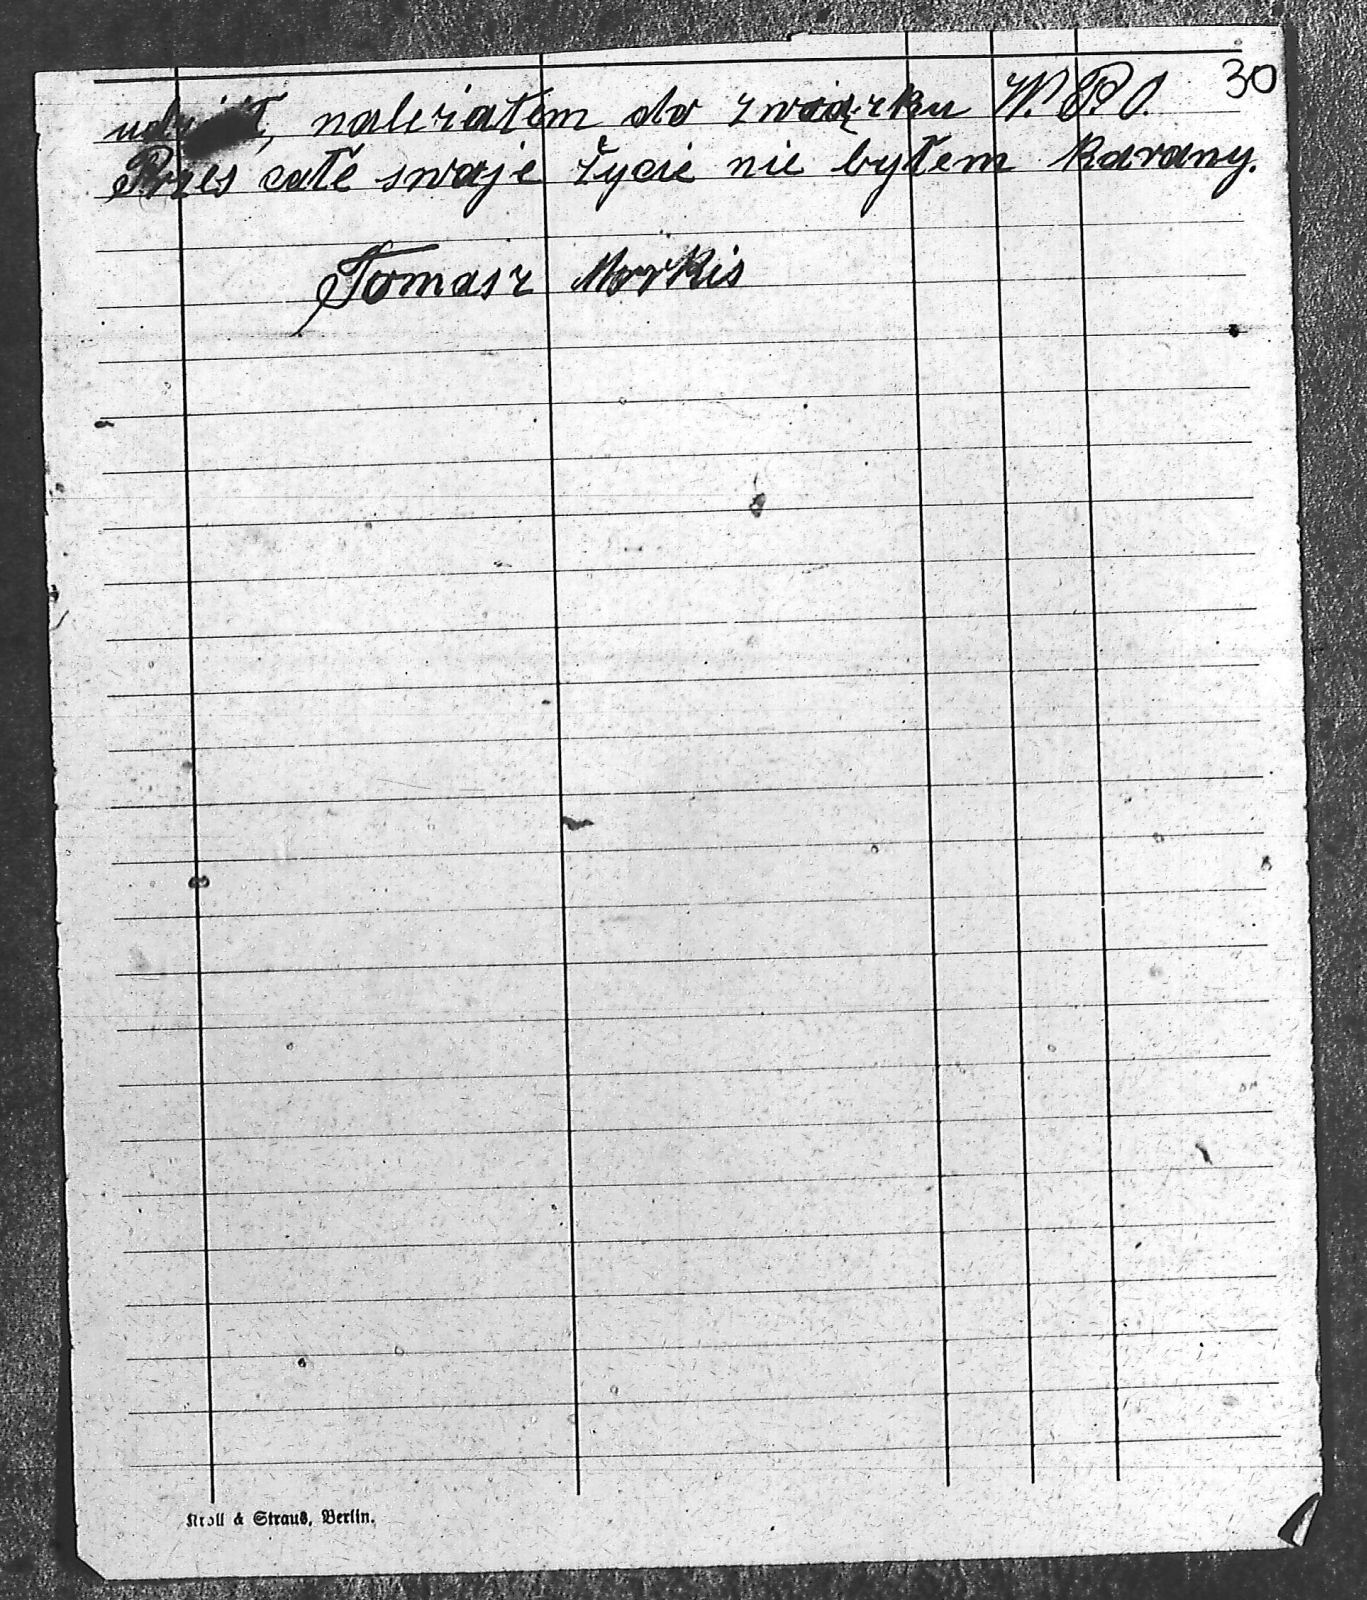 30
należałem do związku W.P.O.
Przes całe swoje życie nie byłem karany.
Tomasz Morkis
Kroll & Straus, Berlin.